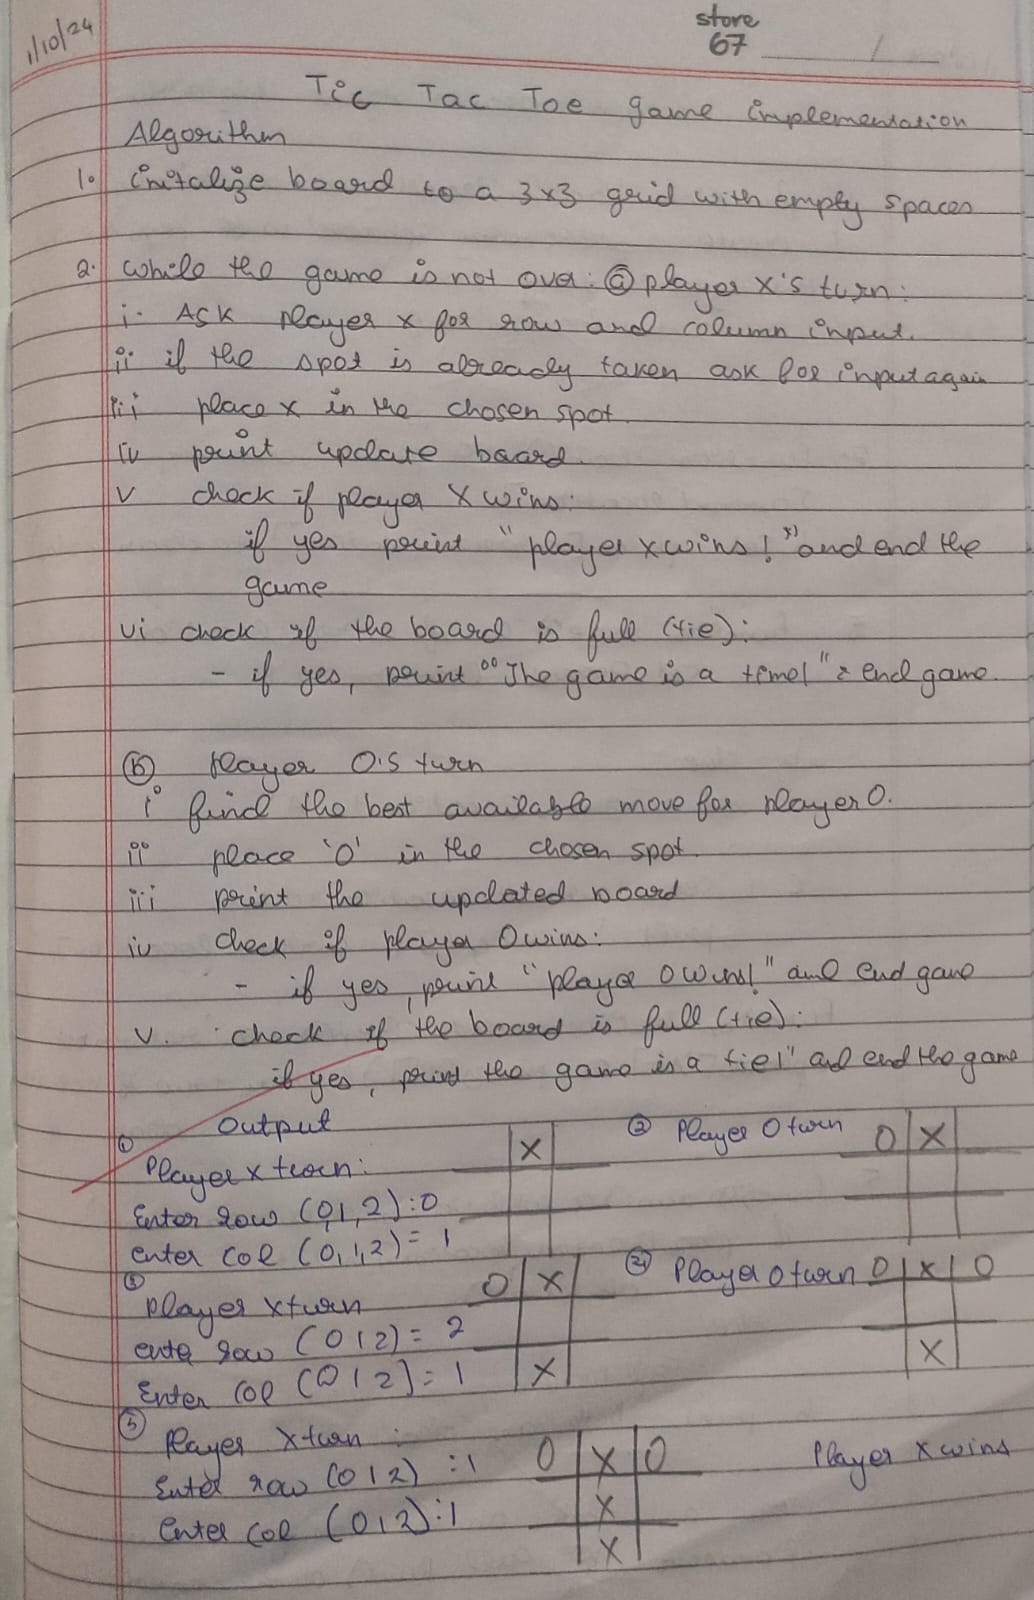 1/10/24
store
67
Tic Tac Toe game implementation
Algorithm
1. initalize board to a 3x3 grid with empty spaces
2. while the game is not over: ⓐ player X's turn:
i. Ask player x for row and column input.
ii if the spot is already taken ask for input again
iii place x in the chosen spot.
iv print update board.
v check if player X wins:
if yes print "player x wins!" and end the
game
vi check if the board is full (tie):
- if yes, print "The game is a" & end game.
ⓑ Player O's turn
i find the best available move for player O.
ii place 'O' in the chosen spot.
iii print the updated board
iv check if player O wins:
- if yes, print "player O wins!" and end game
v. check if the board is full (tie):
if yes, print the game is a tie!" and end the game
Output
① Player x turn:
X
Enter row (0,1,2):0
enter col (0,1,2)= 1
② Player O turn
O X
③ player x turn
O X
enter row (0 1 2) = 2
Enter col (0 1 2) = 1
X
④ Player O turn O X O
X
⑤ Player X turn :
Enter row (0 1 2) :1
Enter col (0 1 2):1
O X O
X
X
Player X wins